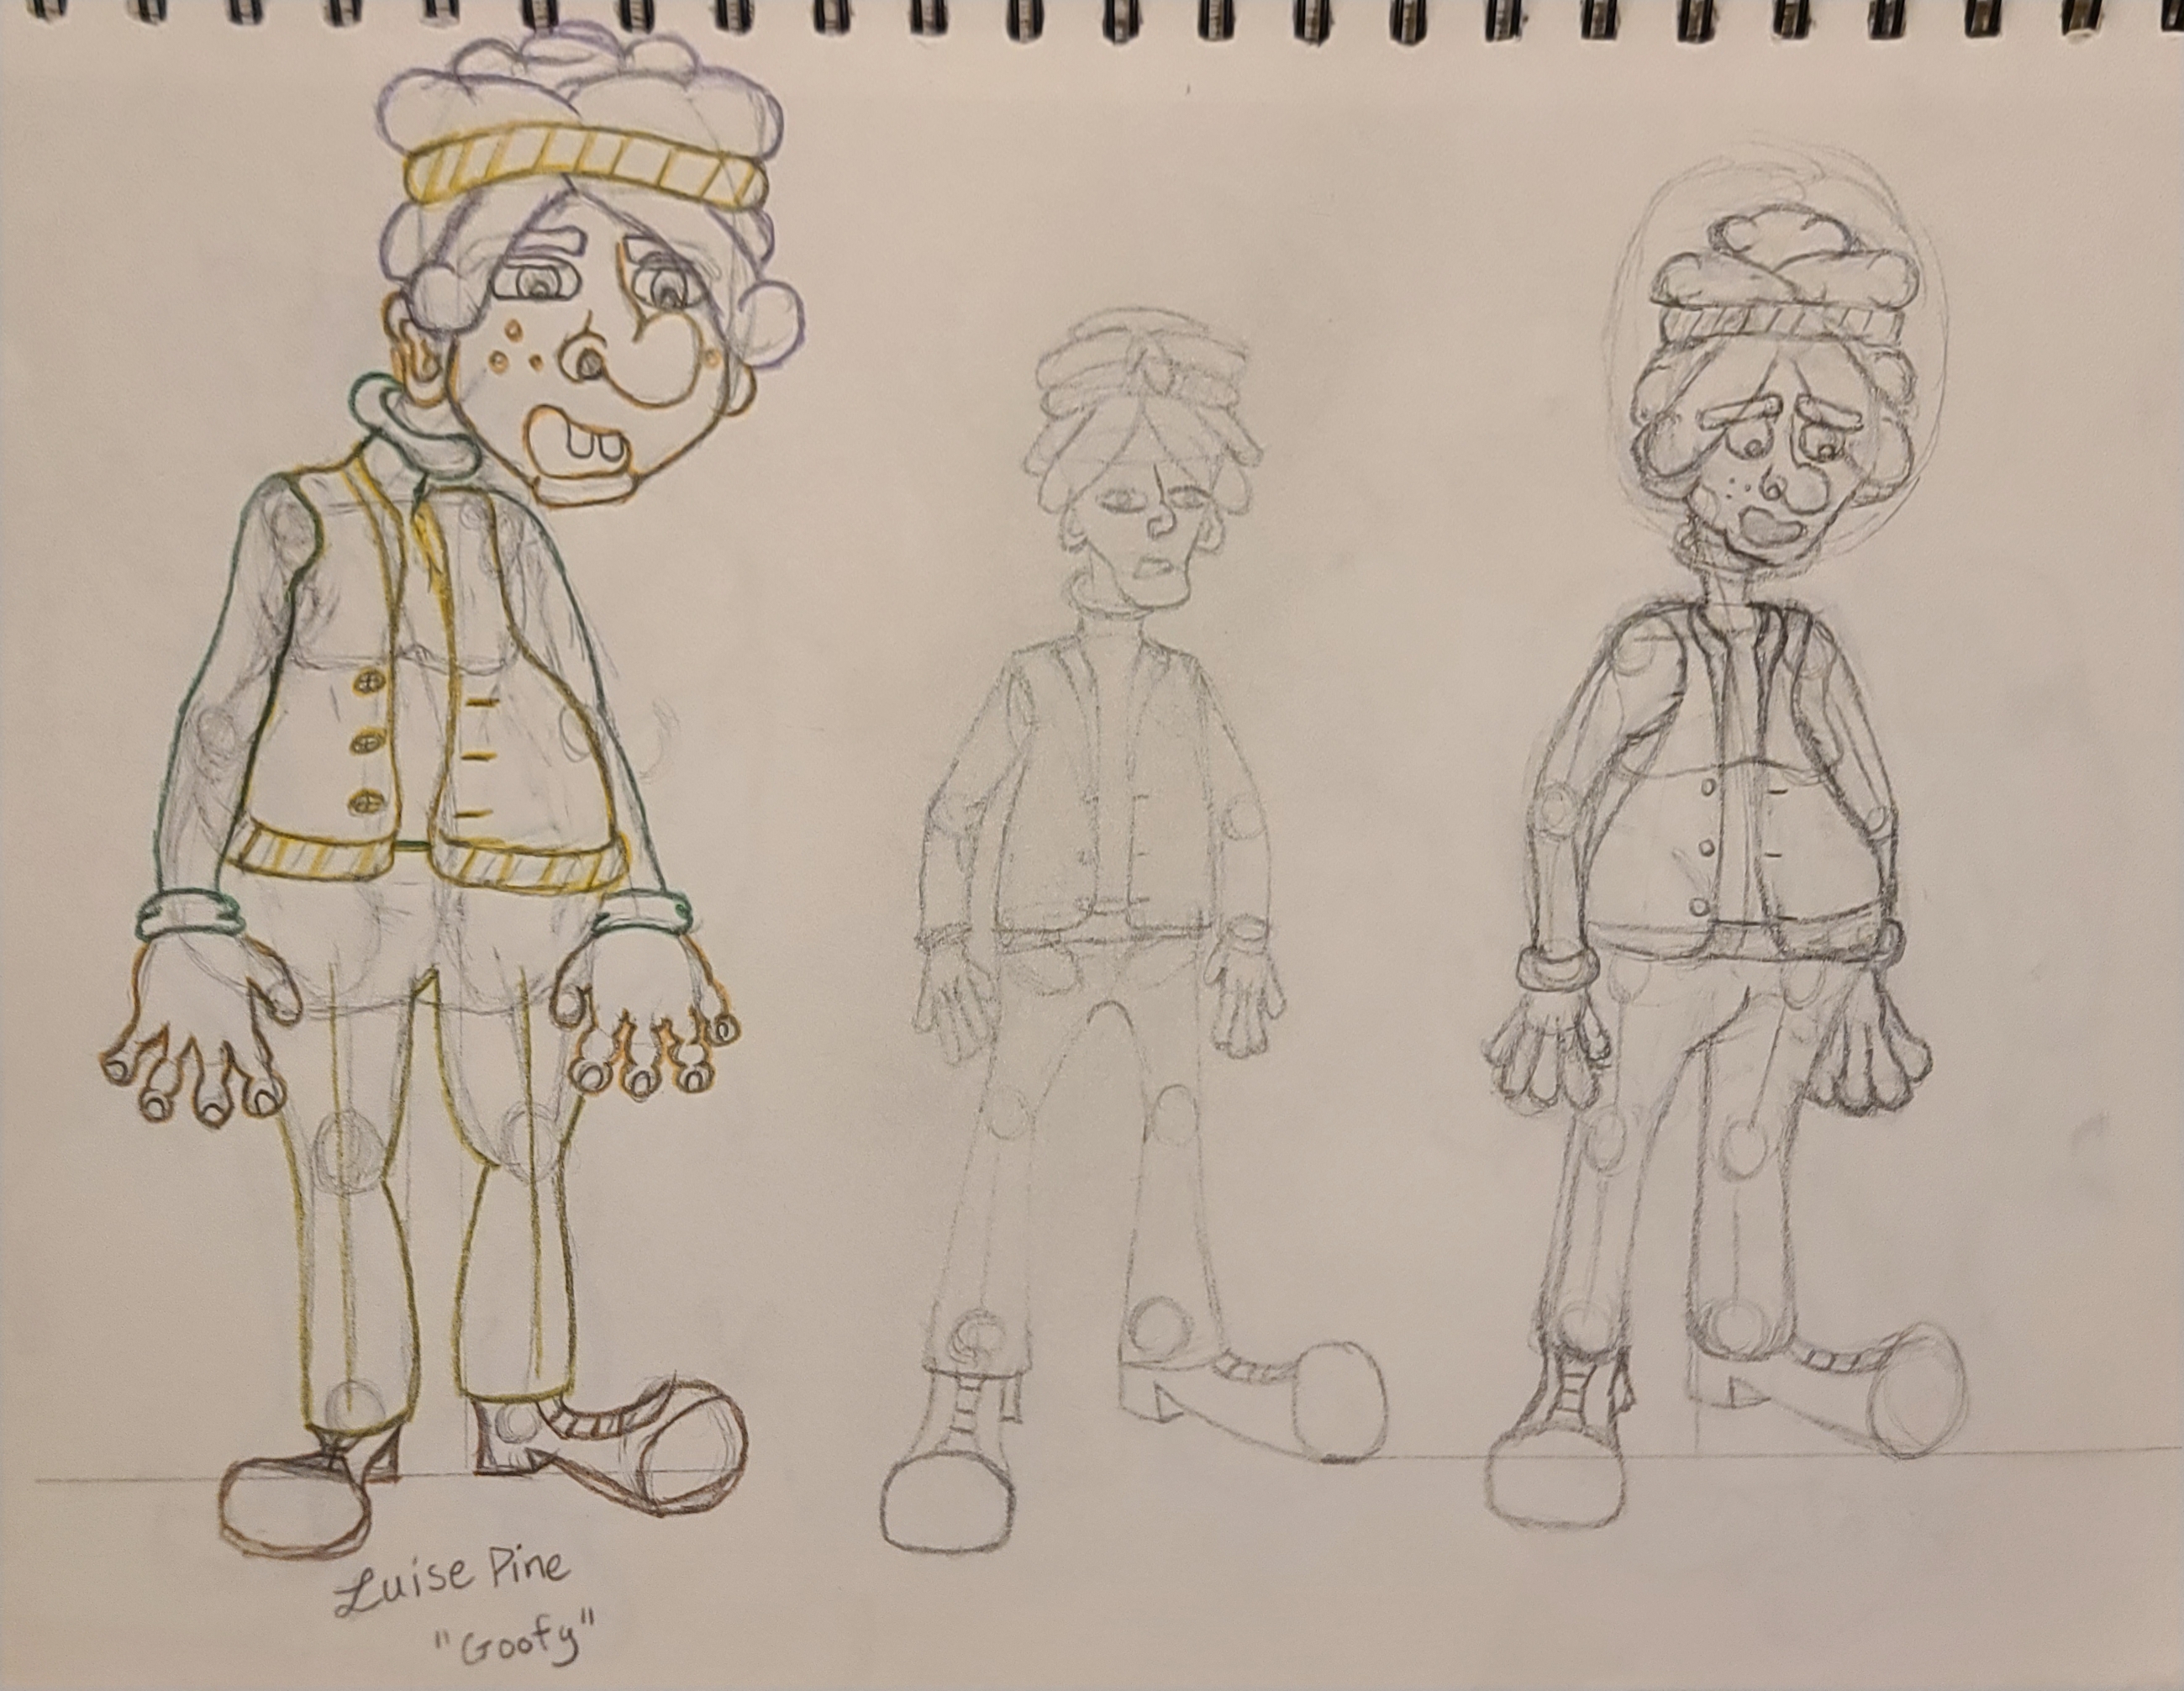 Luise Pine
"Goofy"